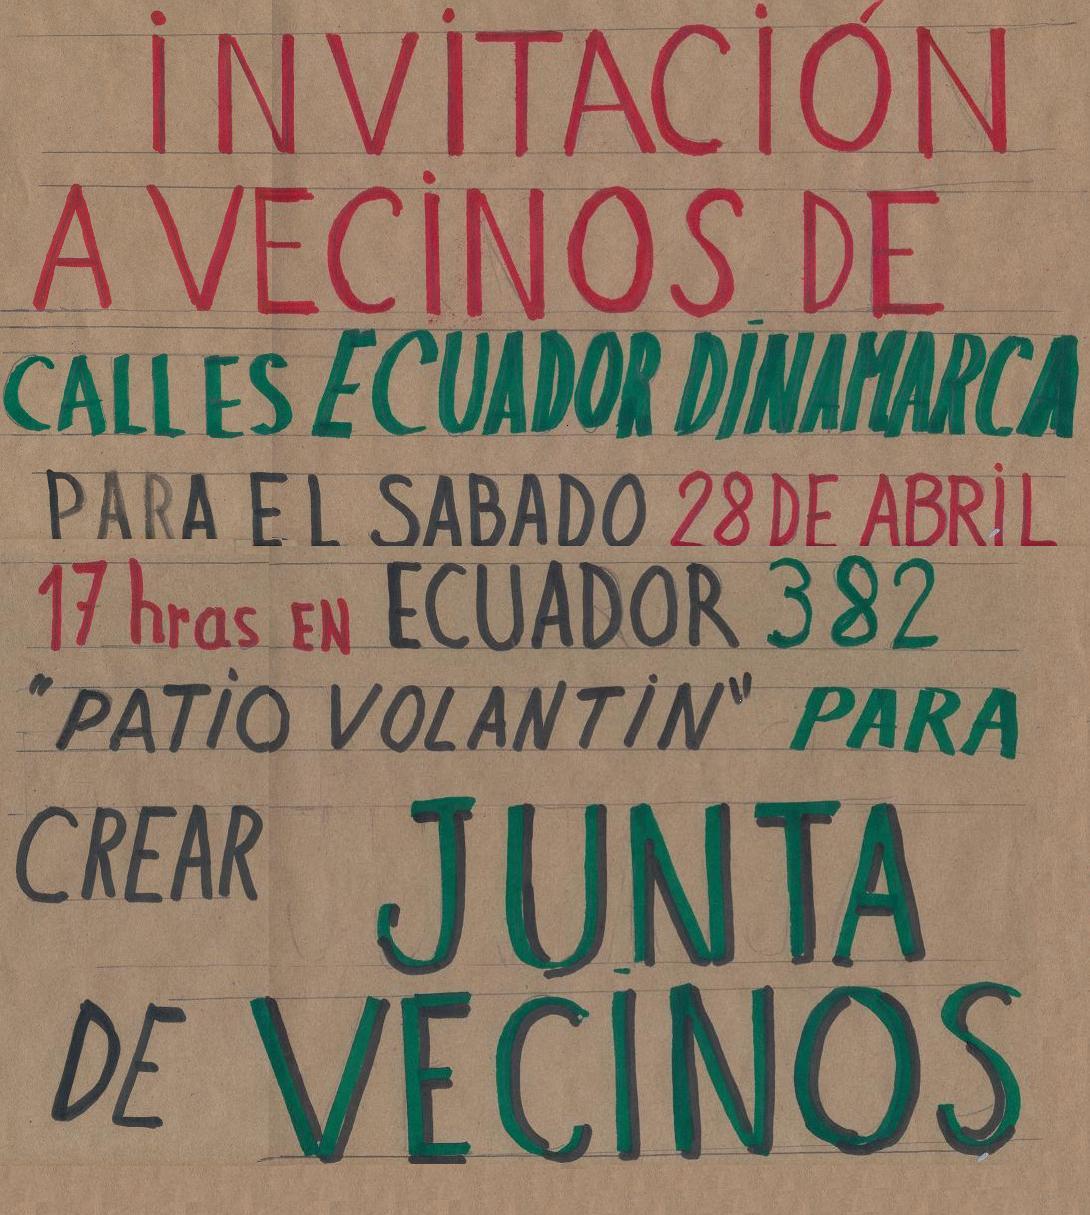 INVITACIÓN
A VECINOS DE
CALLES ECUADOR DINAMARCA
PARA EL SABADO 28 DE ABRIL
17 hras EN ECUADOR 382
"PATIO VOLANTIN" PARA
CREAR JUNTA
DE VECINOS